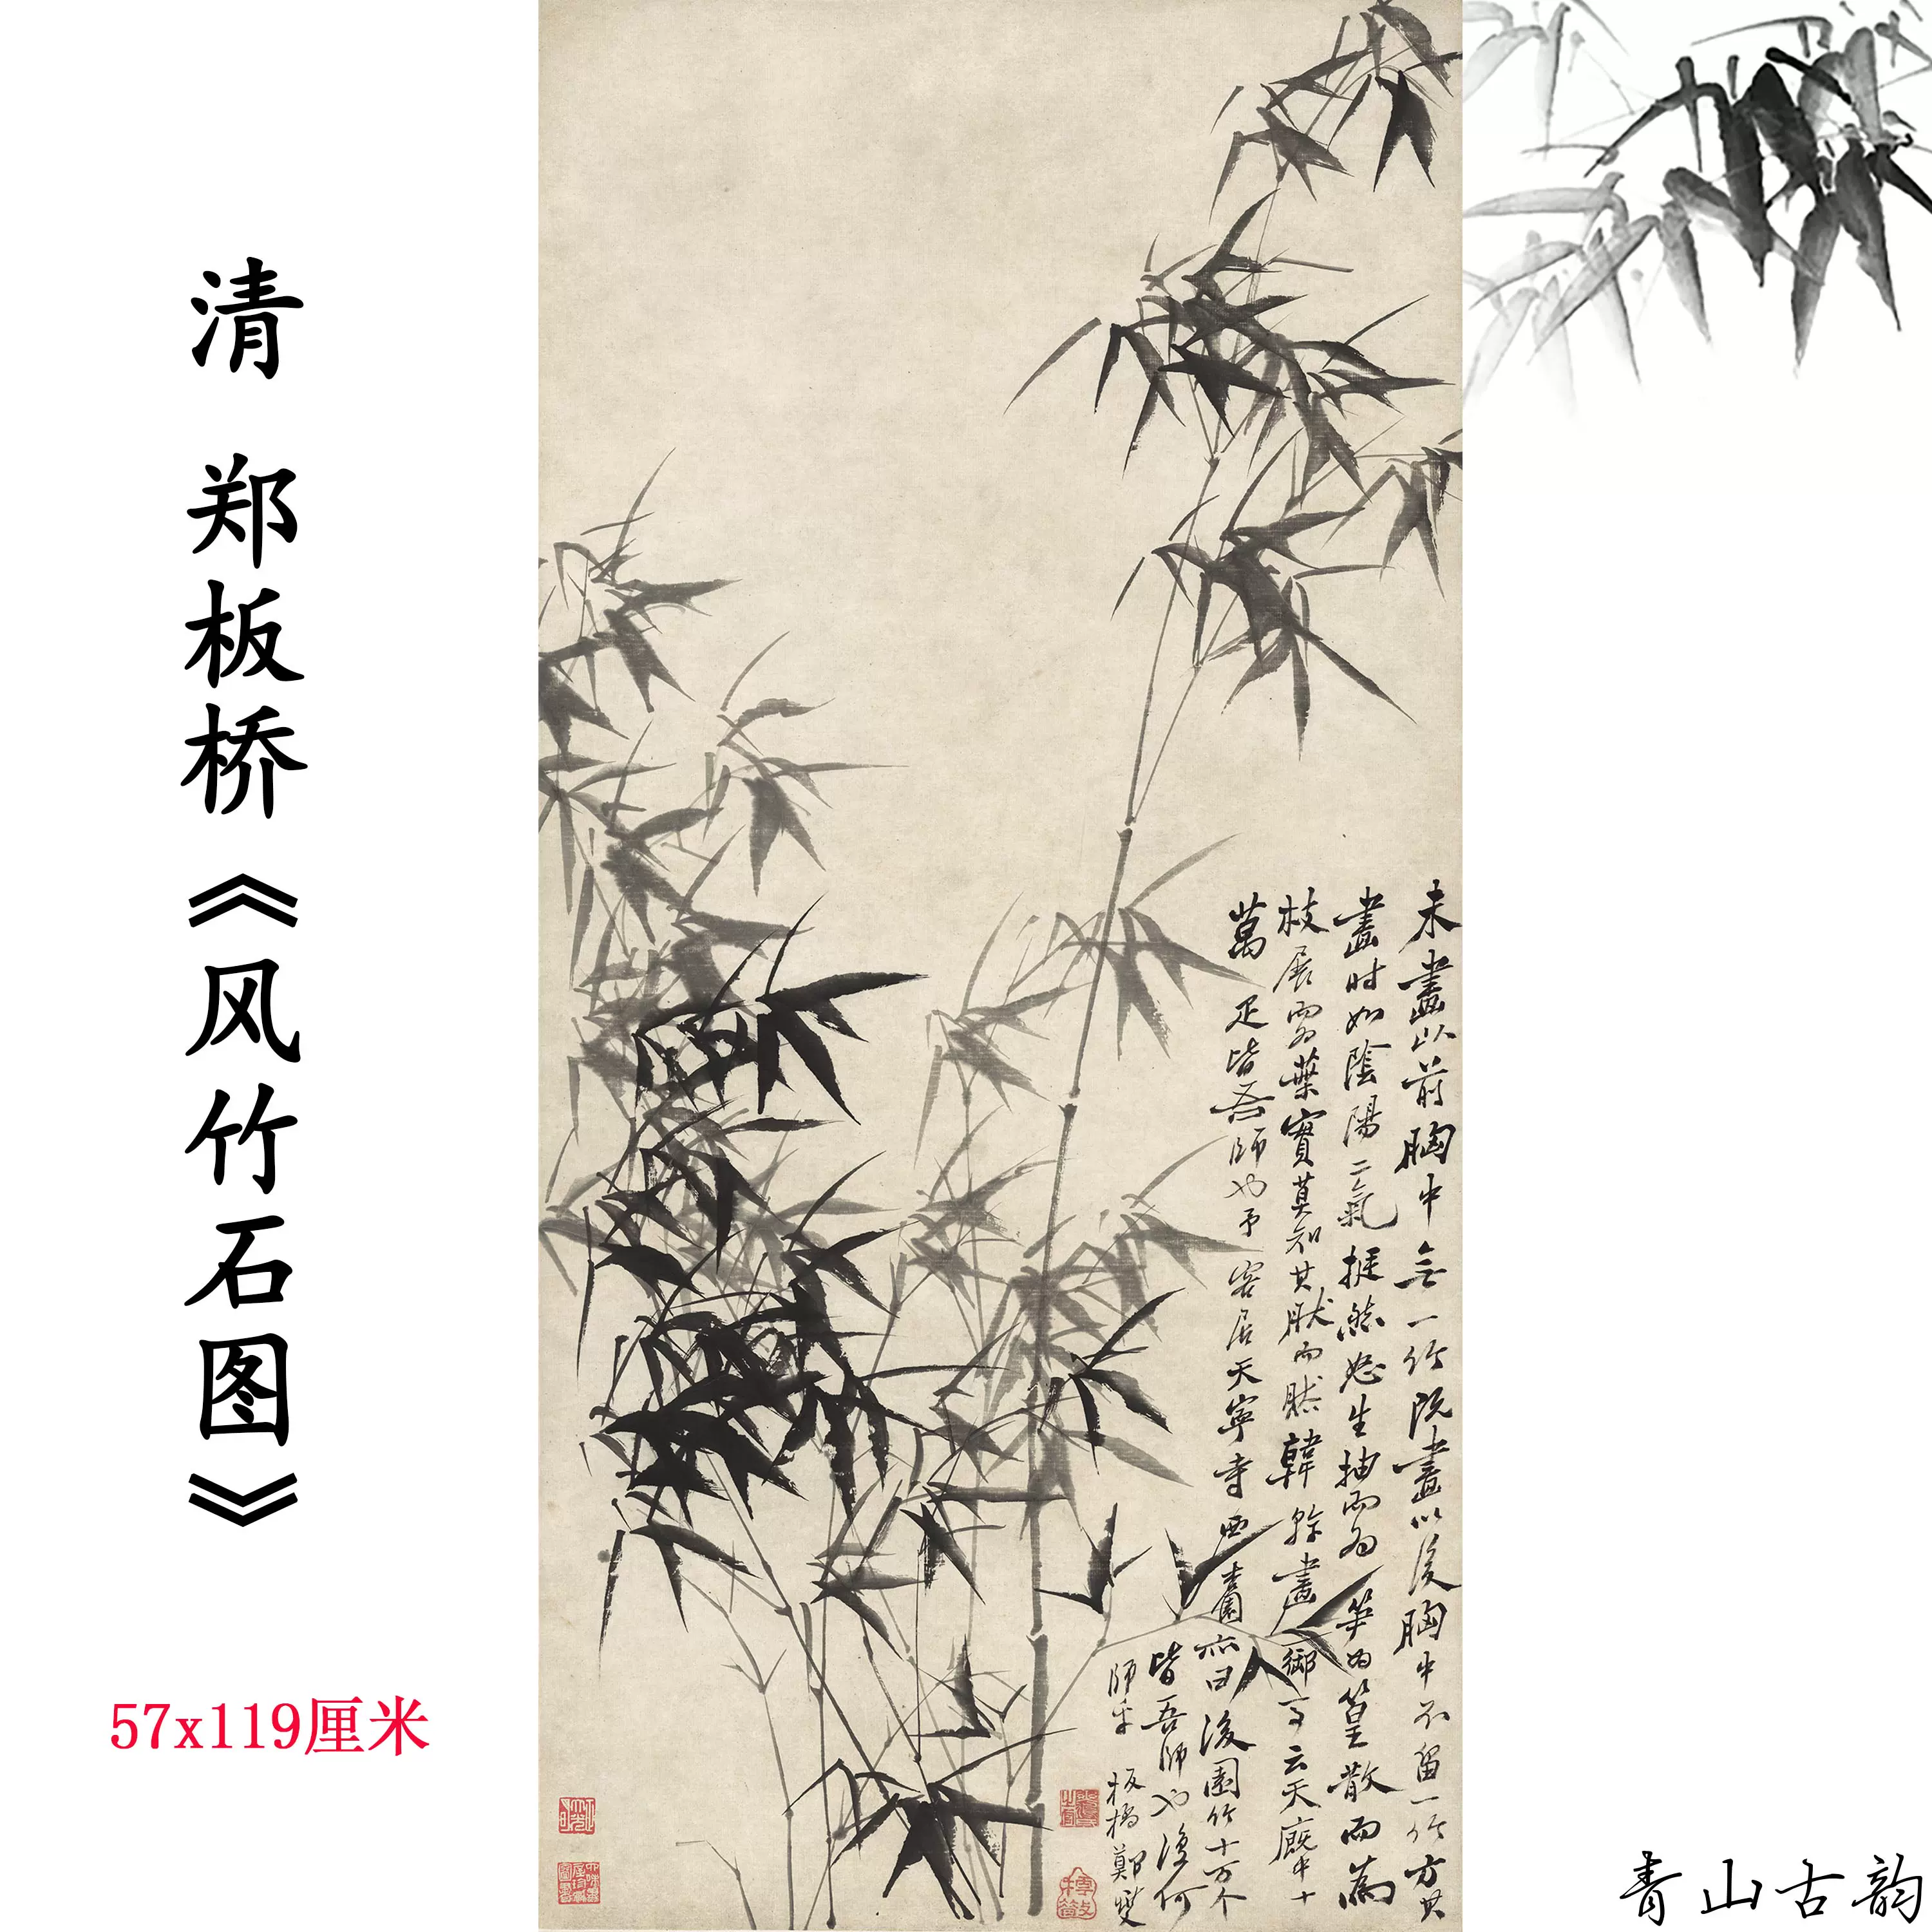 清 郑板桥《风竹石图》
57x119厘米
未畫以前胸中無一竹既畫以後胸中不留一竹方其
畫时如陰陽二氣挺然怒生抽而為笋为篁散而為
枝展而為葉實莫知其肰而然韓幹畫御馬云天廄中十
萬疋皆吾師也予客居天寧寺西杏園亦曰後園竹十万个
皆吾師也復何
師乎 板橋鄭燮
青山古韵